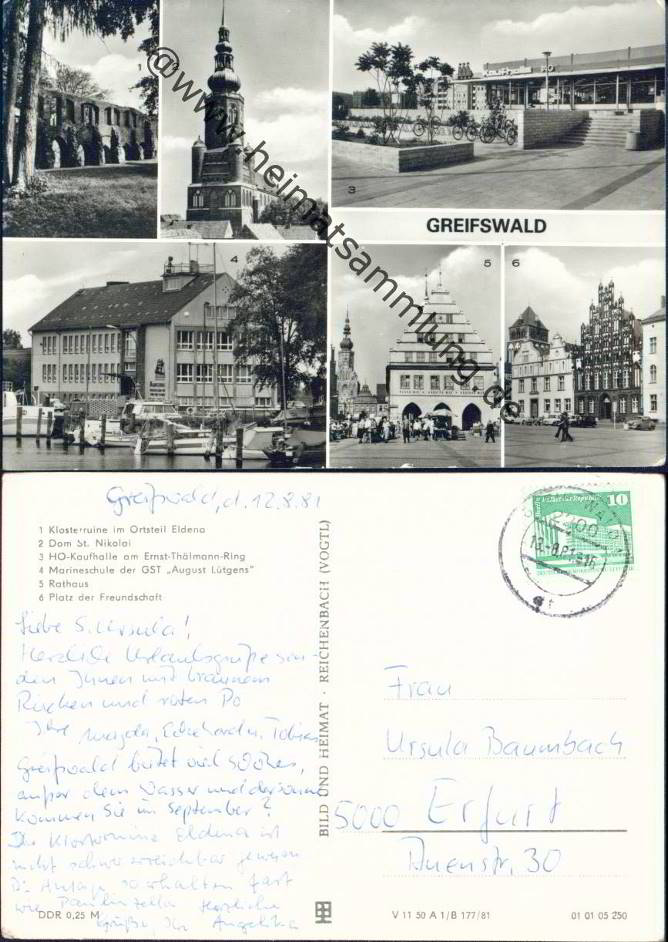 1
@www.heimatsammlung.de
3
Kaufhalle HO
GREIFSWALD
4
5
6
Greifswald, d. 12.8.81
1 Klosterruine im Ortsteil Eldena
2 Dom St. Nikolai
3 HO-Kaufhalle am Ernst-Thälmann-Ring
4 Marineschule der GST „August Lütgens"
5 Rathaus
6 Platz der Freundschaft
10
2200
Liebe S. Ursula!
Herzliche Urlaubsgrüße sen-
den Ihnen mit braunem
Rücken und roten Po
Ihre Magda, Eckehard u. Tobias
Greifswald bietet viel Schönes,
außer dem Wasser und der Sonne
kommen Sie im September?
Die Klosterruine Eldena ist
nicht schwer erreichbar gewesen
Die Anlage so erhalten fast
wie Paulinzella Herzliche
Grüße, Ihr Angelika
BILD UND HEIMAT · REICHENBACH (VOGTL)
Frau
Ursula Baumbach
5000 Erfurt
Auenstr. 30
DDR 0,25 M
V 11 50 A 1/B 177/81
01 01 05 250